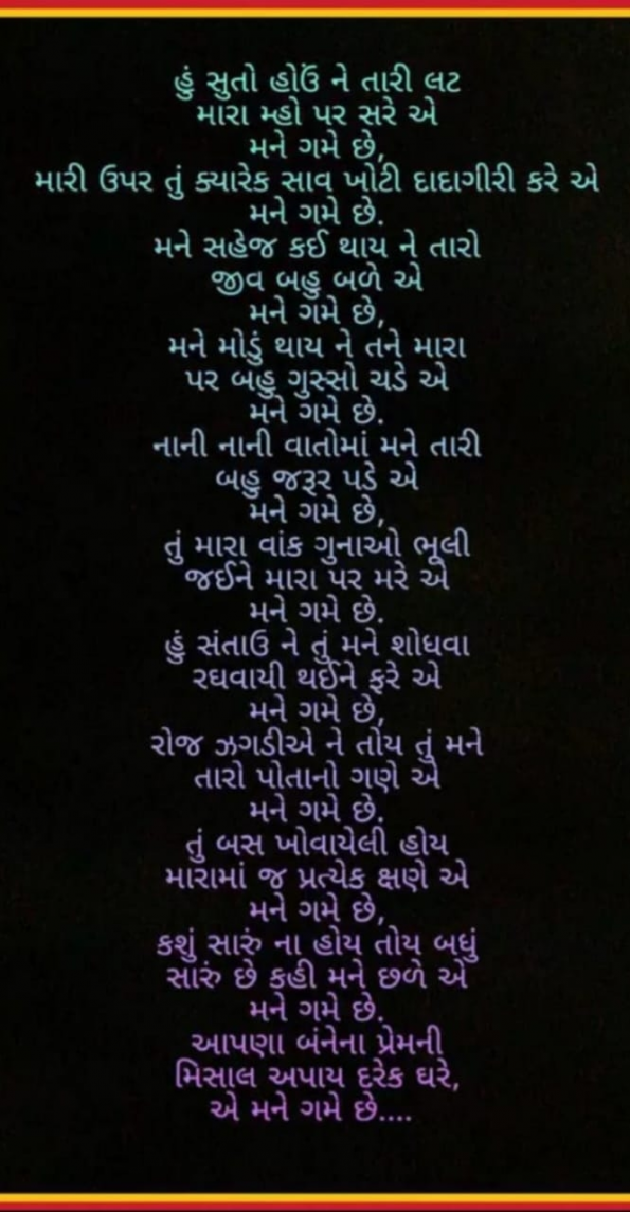 હું સુતો હોઉં ને તારી લટ
મારા મ્હો પર સરે એ
મને ગમે છે,
મારી ઉપર તું ક્યારેક સાવ ખોટી દાદાગીરી કરે એ
મને ગમે છે.
મને સહેજ કઈ થાય ને તારો
જીવ બહુ બળે એ
મને ગમે છે,
મને મોડું થાય ને તને મારા
પર બહુ ગુસ્સો ચડે એ
મને ગમે છે.
નાની નાની વાતોમાં મને તારી
બહુ જરૂર પડે એ
મને ગમે છે,
તું મારા વાંક ગુનાઓ ભૂલી
જઈને મારા પર મરે એ
મને ગમે છે.
હું સંતાઉ ને તું મને શોધવા
રઘવાયી થઈને ફરે એ
મને ગમે છે,
રોજ ઝગડીએ ને તોય તું મને
તારો પોતાનો ગણે એ
મને ગમે છે.
તું બસ ખોવાયેલી હોય
મારામાં જ પ્રત્યેક ક્ષણે એ
મને ગમે છે,
કશું સારું ના હોય તોય બધું
સારું છે કહી મને છળે એ
મને ગમે છે.
આપણા બંનેના પ્રેમની
મિસાલ અપાય દરેક ઘરે,
એ મને ગમે છે....